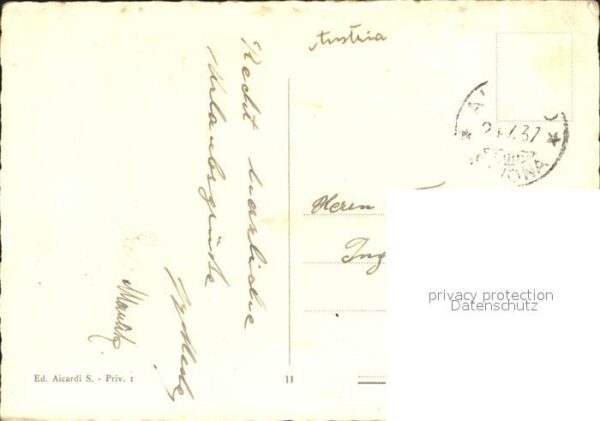 Austria
Recht herzliche
Urlaubsgrüsse
Herrn
Ing
2 7.37
privacy protection
Datenschutz
Ed. Aicardi S. - Priv. 1
11